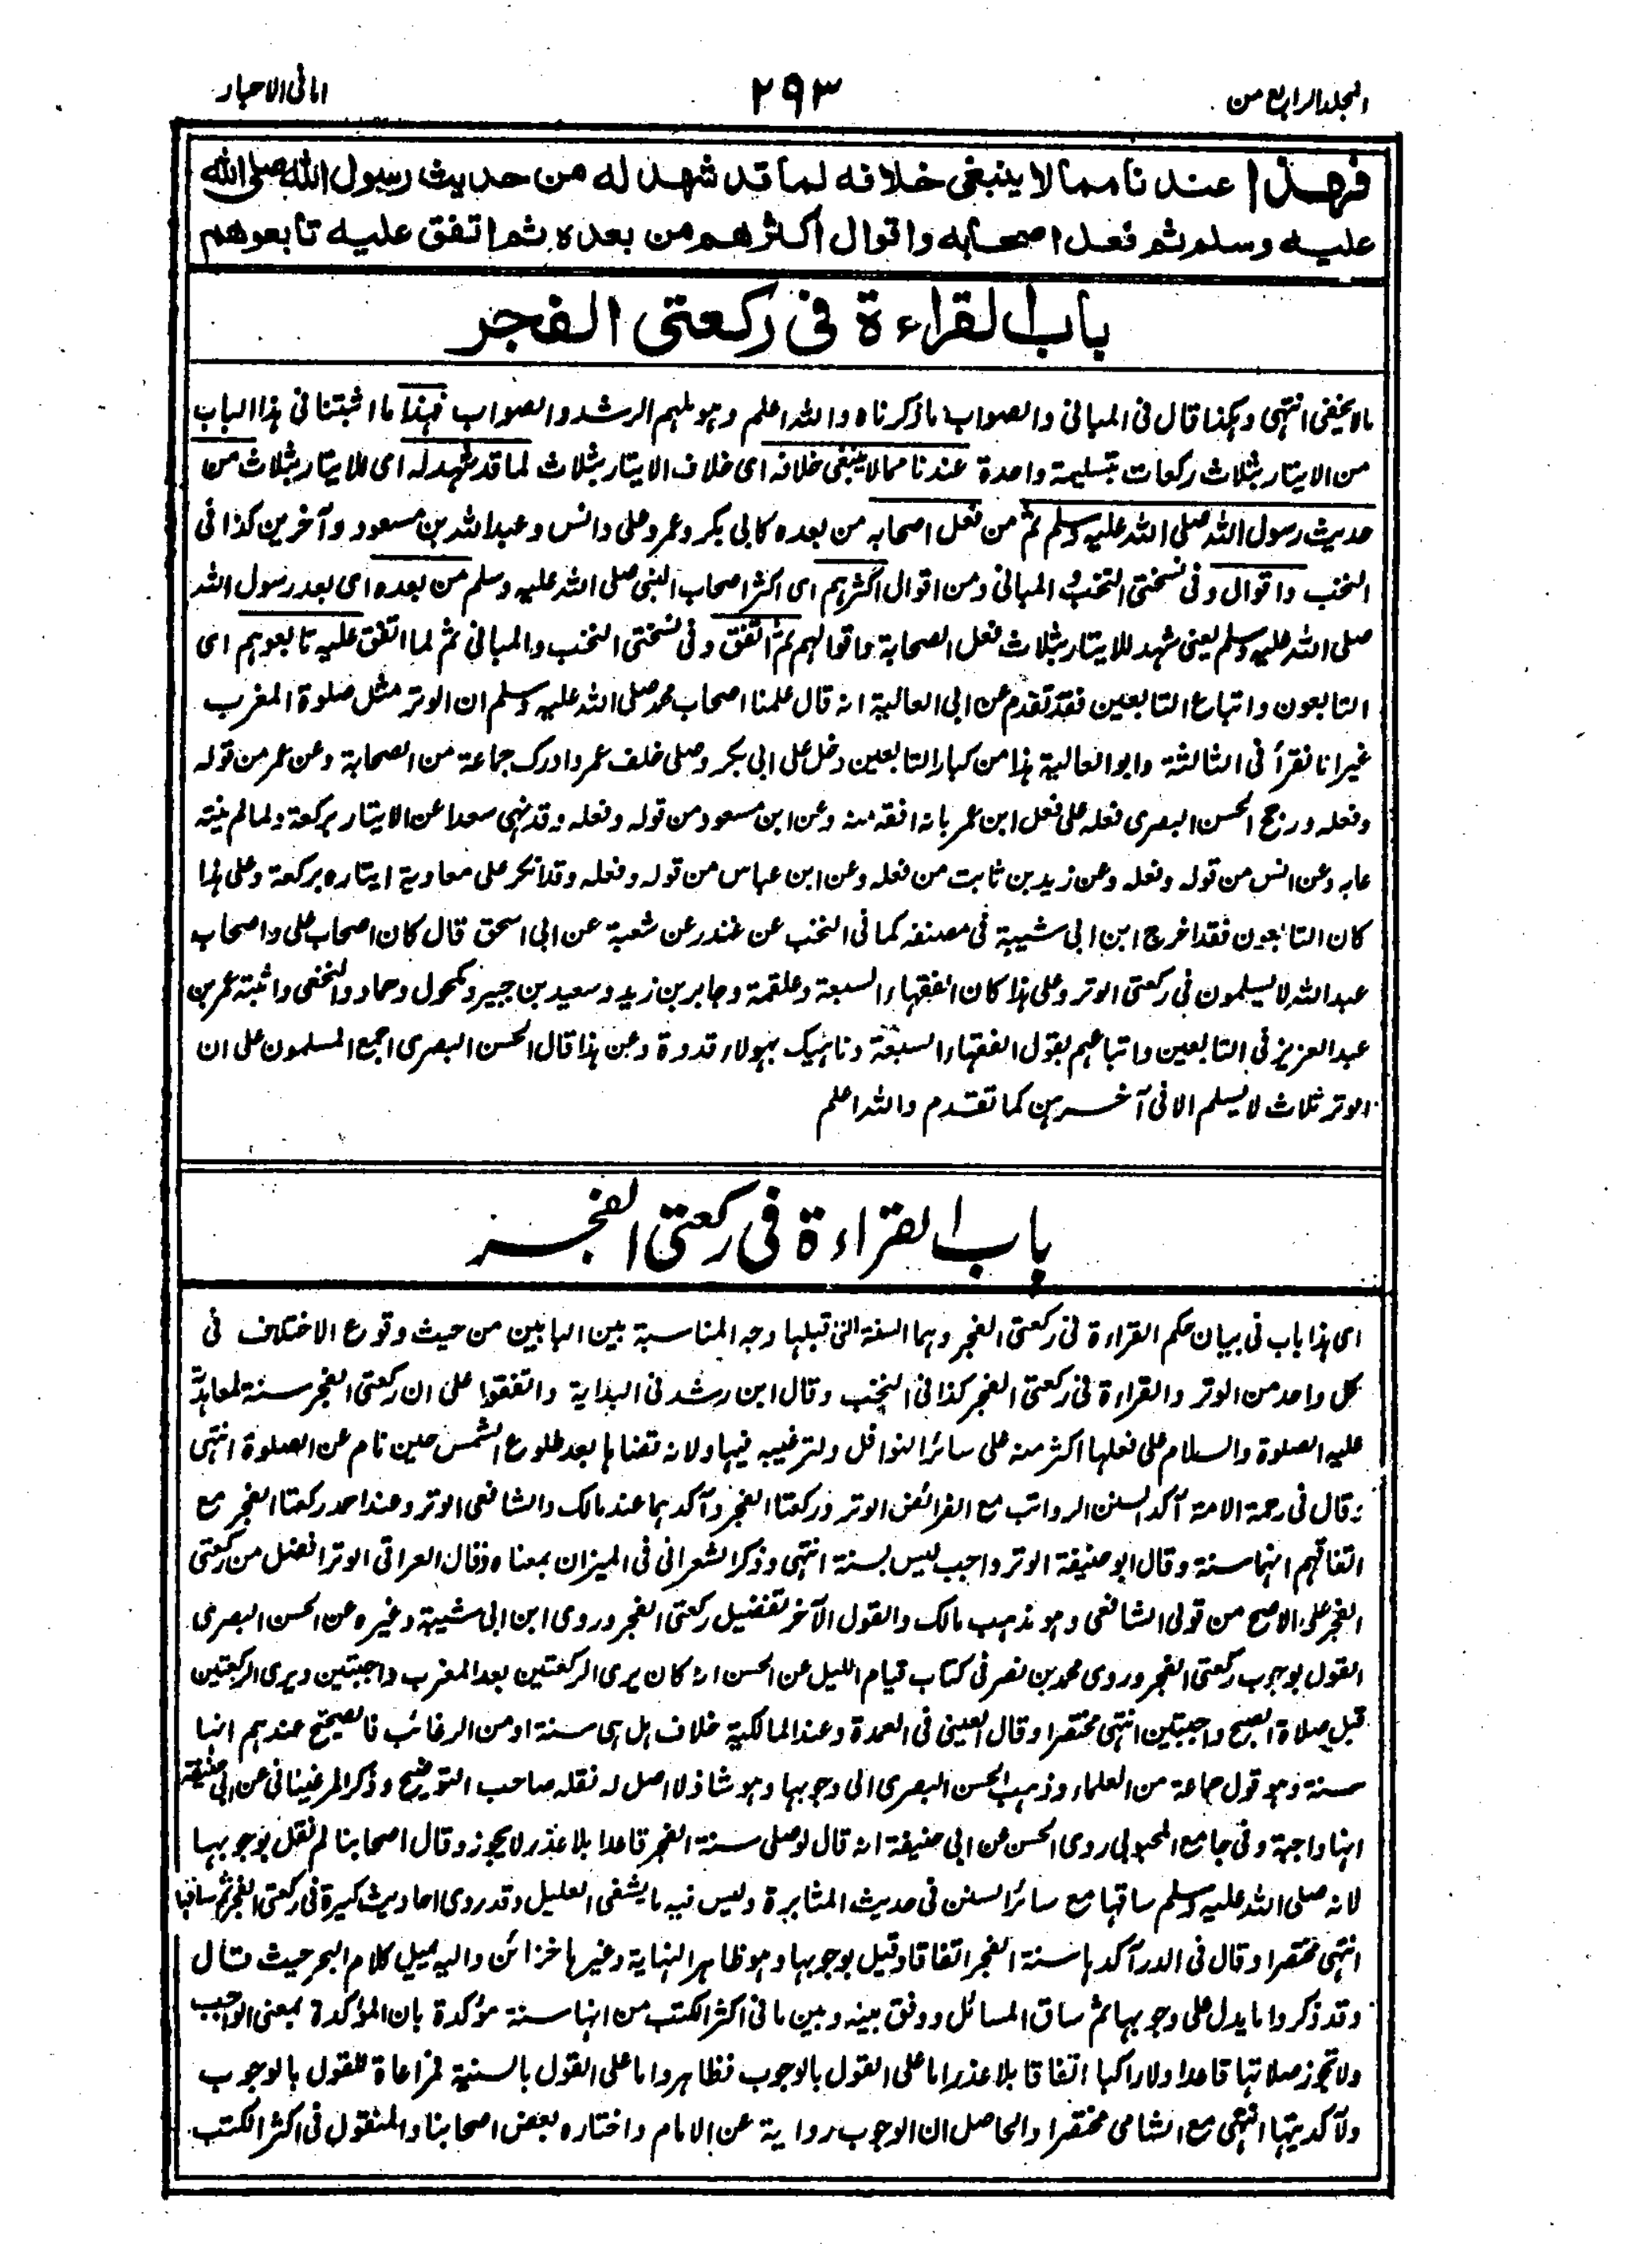 المجلد الرابع من
٢٩٣
امانی الاحبار
فهذا عندنا مما لا ينبغی خلافه لما قد شهد له من حديث رسول الله صلی الله
عليه وسلم ثم فعل اصحابه واقوال اكثرهم من بعده ثم اتفق عليه تابعوهم
باب القراءة فی ركعتی الفجر
مالا يخفی انتهی وهكذا قال فی المبانی والصواب ما ذكرناه والله اعلم وهو ملهم الرشد والصواب فهذا ما اثبتنا فی هذا الباب
من الايتار بثلاث ركعات بتسليمة واحدة عندنا مما لا ينبغی خلافه ای خلاف الايتار بثلاث لما قد شهد له ای للايتار بثلاث من
حديث رسول الله صلی الله عليه وسلم ثم من فعل اصحابه من بعده كابی بكر وعمر وعلی وانس وعبدالله بن مسعود وآخرين كذا فی
النخب واقوال وفی نسختی النخب والمبانی ومن اقوال اكثرهم ای اكثر اصحاب النبی صلی الله عليه وسلم من بعده ای بعد رسول الله
صلی الله عليه وسلم يعنی شهد للايتار بثلاث فعل الصحابة واقوالهم ثم اتفق وفی نسختی النخب والمبانی ثم لما اتفق عليه تابعوهم ای
التابعون واتباع التابعين فقد تقدم عن ابی العالية انه قال علمنا اصحاب محمد صلی الله عليه وسلم ان الوتر مثل صلوة المغرب
غير انا نقرأ فی الثالثة وابو العالية هذا من كبار التابعين دخل علی ابی بكر وصلی خلف عمر وادرك جماعة من الصحابة وعن عمر من قوله
وفعله ورجح الحسن البصری فعله علی فعل ابن عمر بانه افقه منه وعن ابن مسعود من قوله وفعله وقد نهی سعدا عن الايتار بركعة ولما لم ينته
عابه وعن انس من قوله وفعله وعن زيد بن ثابت من فعله وعن ابن عباس من قوله وفعله وقد انكر علی معاوية ايتاره بركعة وعلی هذا
كان التابعون فقد اخرج ابن ابی شيبة فی مصنفه كما فی النخب عن غندر عن شعبة عن ابی اسحق قال كان اصحاب علی واصحاب
عبدالله لا يسلمون فی ركعتی الوتر وعلی هذا كان الفقهاء السبعة وعلقمة وجابر بن زيد وسعيد بن جبير ومكحول وحماد والنخعی واثبته عمر بن
عبدالعزيز فی التابعين واتباعهم بقول الفقهاء السبعة وناهيك بهولاء قدوة وعن هذا قال الحسن البصری اجمع المسلمون علی ان
الوتر ثلاث لا يسلم الا فی آخرهن كما تقدم والله اعلم
باب القراءة فی ركعتی الفجر
ای هذا باب فی بيان حكم القراءة فی ركعتی الفجر وهما السنة التی قبلها وجه المناسبة بين البابين من حيث وقوع الاختلاف فی
كل واحد من الوتر والقراءة فی ركعتی الفجر كذا فی النخب وقال ابن رشد فی البداية واتفقوا علی ان ركعتی الفجر سنة لمعاهدته
عليه الصلوة والسلام علی فعلها اكثر منه علی سائر النوافل ولترغيبه فيها ولانه قضاها بعد طلوع الشمس حين نام عن الصلوة انتهی
وقال فی رحمة الامة آكد السنن الرواتب مع الفرائض الوتر وركعتا الفجر وآكدهما عند مالك والشافعی الوتر وعند احمد ركعتا الفجر مع
اتفاقهم انهما سنة وقال ابو حنيفة الوتر واجب ليس بسنة انتهی وذكر الشعرانی فی الميزان بمعناه وقال العراقی الوتر افضل من ركعتی
الفجر علی الاصح من قولی الشافعی وهو مذهب مالك والقول الآخر تفضيل ركعتی الفجر وروی ابن ابی شيبة وغيره عن الحسن البصری
القول بوجوب ركعتی الفجر وروی محمد بن نصر فی كتاب قيام الليل عن الحسن انه كان يری الركعتين بعد المغرب واجبتين ويری الركعتين
قبل صلاة الصبح واجبتين انتهی مختصرا وقال العينی فی العمدة وعند المالكية خلاف هل هی سنة او من الرغائب فالصحيح عندهم انها
سنة وهو قول جماعة من العلماء وذهب الحسن البصری الی وجوبها وهو شاذ لا اصل له نقله صاحب التوضيح وذكر المرغينانی عن ابی حنيفة
انها واجبة وفی جامع المحبوبی روی الحسن عن ابی حنيفة انه قال لو صلی سنة الفجر قاعدا بلا عذر لا يجوز وقال اصحابنا لم نقل بوجوبها
لانه صلی الله عليه وسلم ساقها مع سائر السنن فی حديث المثابرة وليس فيه ما يشفی العليل وقد روی احاديث كثيرة فی ركعتی الفجر ثم ساقها
انتهی مختصرا وقال فی الدر آكدها سنة الفجر اتفاقا وقيل بوجوبها وهو ظاهر النهاية وغيرها خزائن واليه يميل كلام البحر حيث قال
وقد ذكروا ما يدل علی وجوبها ثم ساق المسائل ووفق بينه وبين ما فی اكثر الكتب من انها سنة مؤكدة بان المؤكدة بمعنی الواجب
ولا تجوز صلاتها قاعدا ولا راكبا اتفاقا بلا عذر اما علی القول بالوجوب فظاهر واما علی القول بالسنية فمراعاة للقول بالوجوب
ولآكديتها انتهی مع الشامی مختصرا والحاصل ان الوجوب رواية عن الامام واختاره بعض اصحابنا والمنقول فی اكثر الكتب